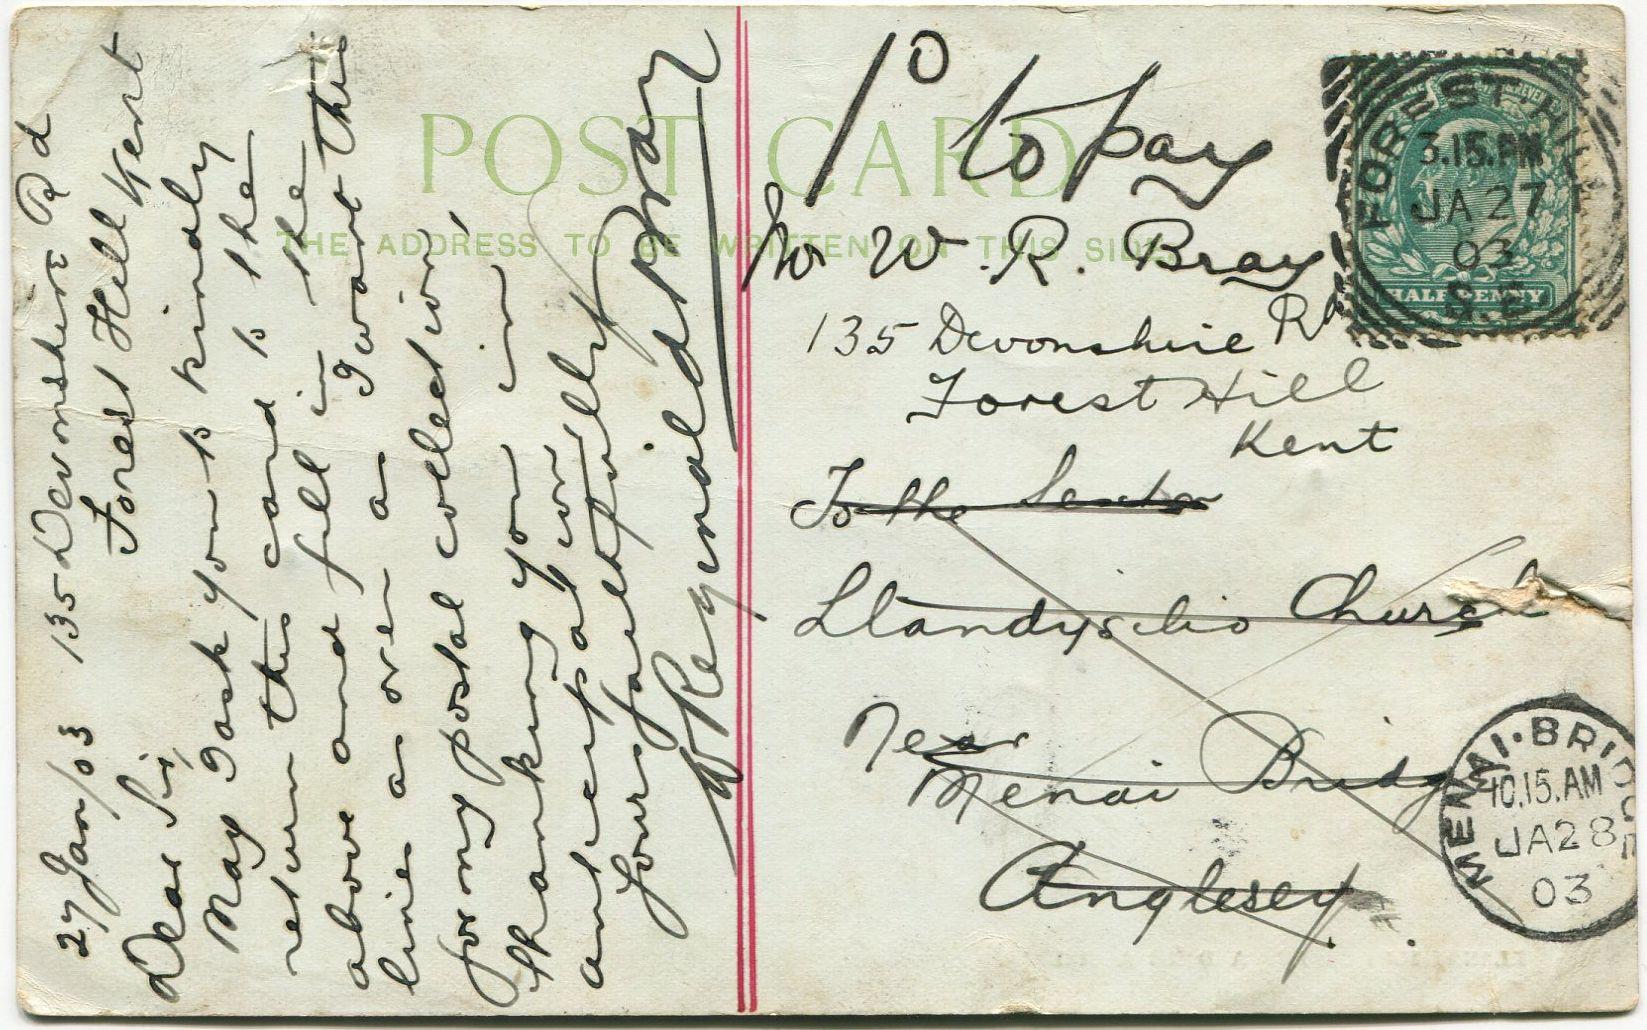 27 Jan/03 135 Devonshire Rd
Forest Hill Kent
Dear Sir,
May I ask you to kindly
return this card to the
above and fill in the
line as over as I want this
for my postal collection,
thanking you in
anticipation
Yours faithfully
W Reginald Bray
POST CARD
THE ADDRESS TO BE WRITTEN ON THIS SIDE
to pay
W. R. Bray
135 Devonshire Rd
Forest Hill
Kent
To the Sexton
Llandysilio Church
Near
Menai Bridge
Anglesey
FOREST HILL
3.15.PM
JA 27
03
S.E.
HALFPENNY
MENAI·BRIDGE
10.15.AM
JA28
03